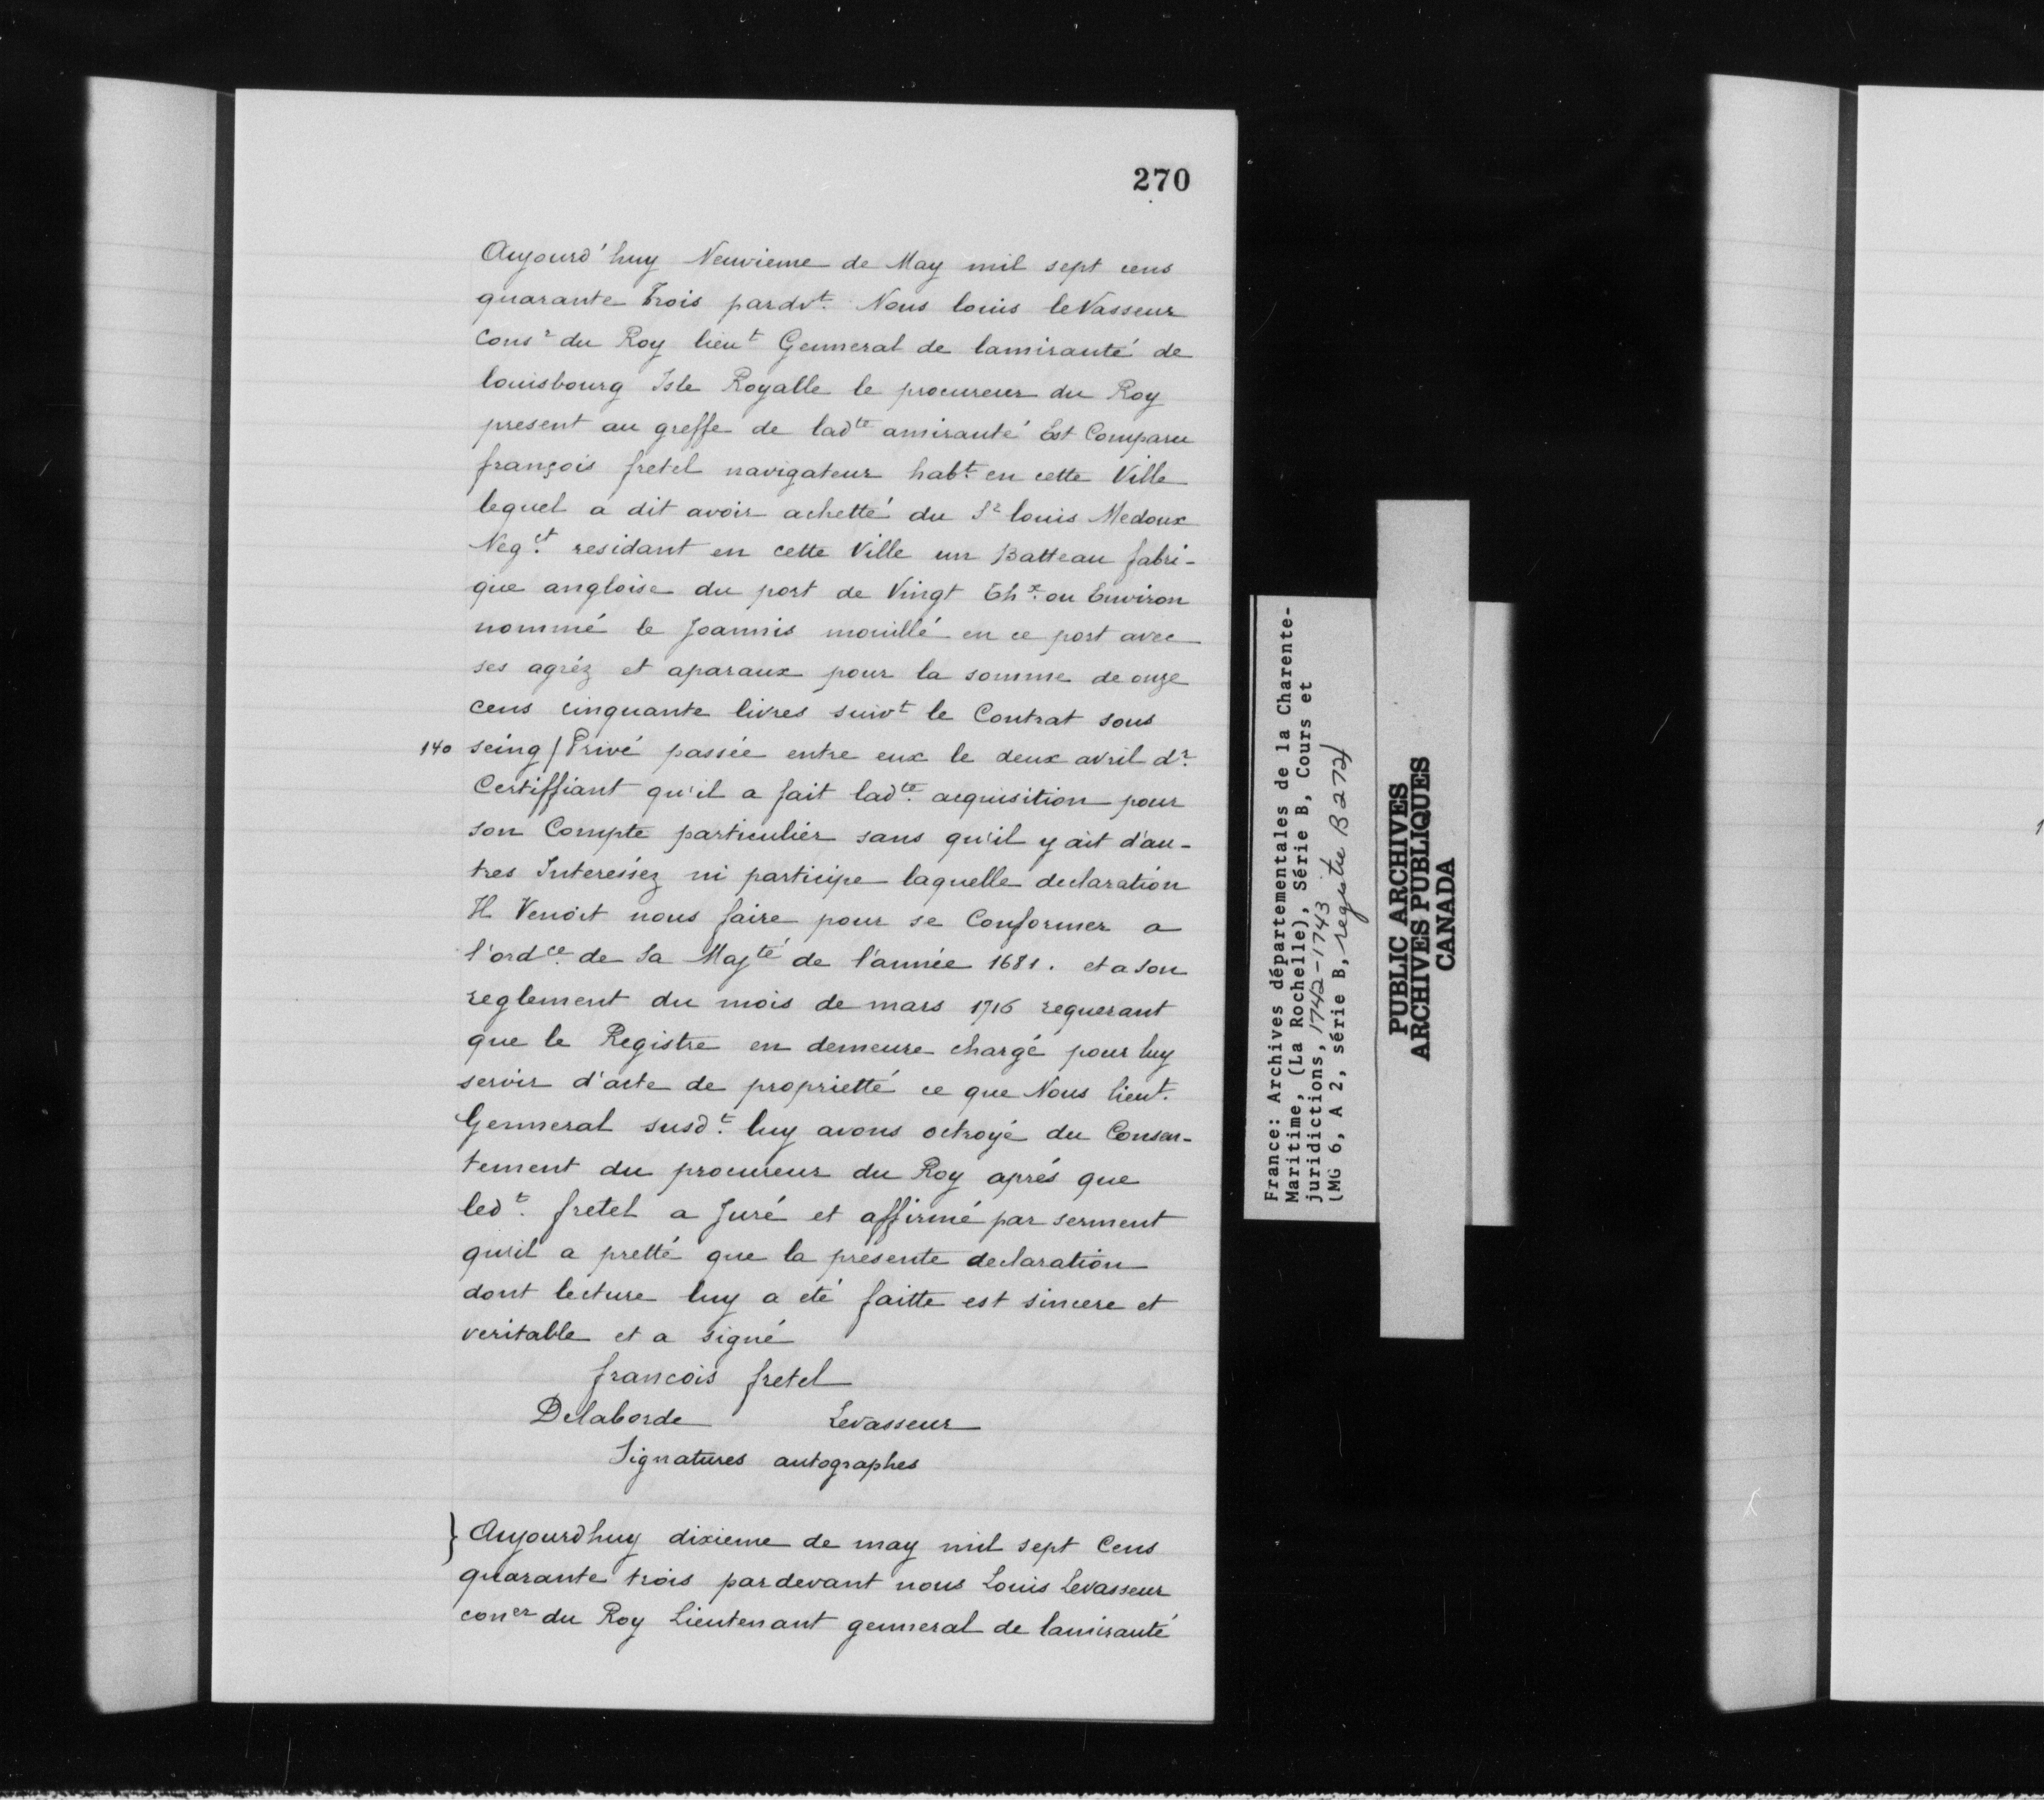 270
Aujourd'huy Neuvieme de May mil sept cens
quarante Trois pardvt. Nous louis leVasseur
Consr du Roy lieut Genneral de lamirauté de
louisbourg Isle Royalle le procureur du Roy
present au greffe de ladte amirauté Est Comparu
françois fretel navigateur habt. en cette Ville
lequel a dit avoir achetté du Sr louis Medoux
Negt. residant en cette Ville un Batteau fabri-
que angloise du port de Vingt Thx. ou Environ
nommé le Joannis mouillé en ce port avec
ses agréz et aparaux pour la somme de onze
cens cinquante livres suivt le Contrat sous
140 seing / Privé passée entre eux le deux avril dr.
Certiffiant qu'il a fait ladte. acquisition pour
son Compte particulier sans qu'il y ait d'au-
tres Interéssez ni participe laquelle declaration
Il Venoit nous faire pour se Conformer a
l'ordce. de Sa Majté de l'année 1681. et a son
reglement du mois de mars 1716 requerant
que le Registre en demeure chargé pour luy
servir d'acte de proprietté ce que Nous lieut.
Genneral susdt. luy avons octroyé du Consen-
tement du procureur du Roy aprés que
ledt. fretel a Juré et affirmé par serment
qu'il a pretté que la presente declaration
dont lecture luy a eté faitte est sincere et
veritable et a signé
francois fretel
Delaborde Levasseur
Signatures autographes
} Aujourdhuy dixieme de may mil sept Cens
quarante trois pardevant nous Louis Levasseur
coner du Roy Lieutenant genneral de lamirauté
France: Archives départementales de la Charente-
Maritime, (La Rochelle), Série B, Cours et
juridictions, 1742-1743
(MG 6, A 2, série B, registre B 272)
PUBLIC ARCHIVES
ARCHIVES PUBLIQUES
CANADA